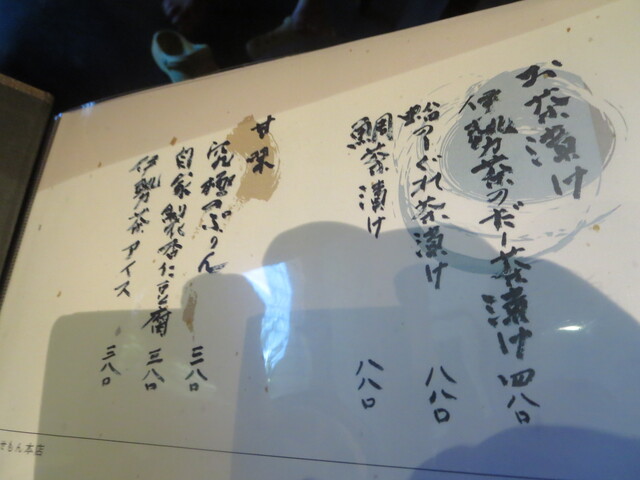 お茶漬け
伊勢茶のだし茶漬け 四八〇
蛤しぐれ茶漬け 八八〇
鯛茶漬け 八八〇
甘味
究極のぷりん 三八〇
自家製杏仁豆腐 三八〇
伊勢茶アイス 三八〇
きもん本店